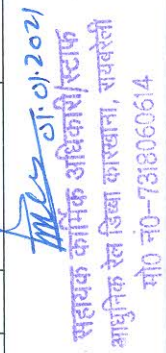 01.01.2021
सहायक कार्मिक अधिकारी/स्टाफ
आधुनिक रेल डिब्बा कारखाना, रायबरेली
मो0 नं0-7318060614